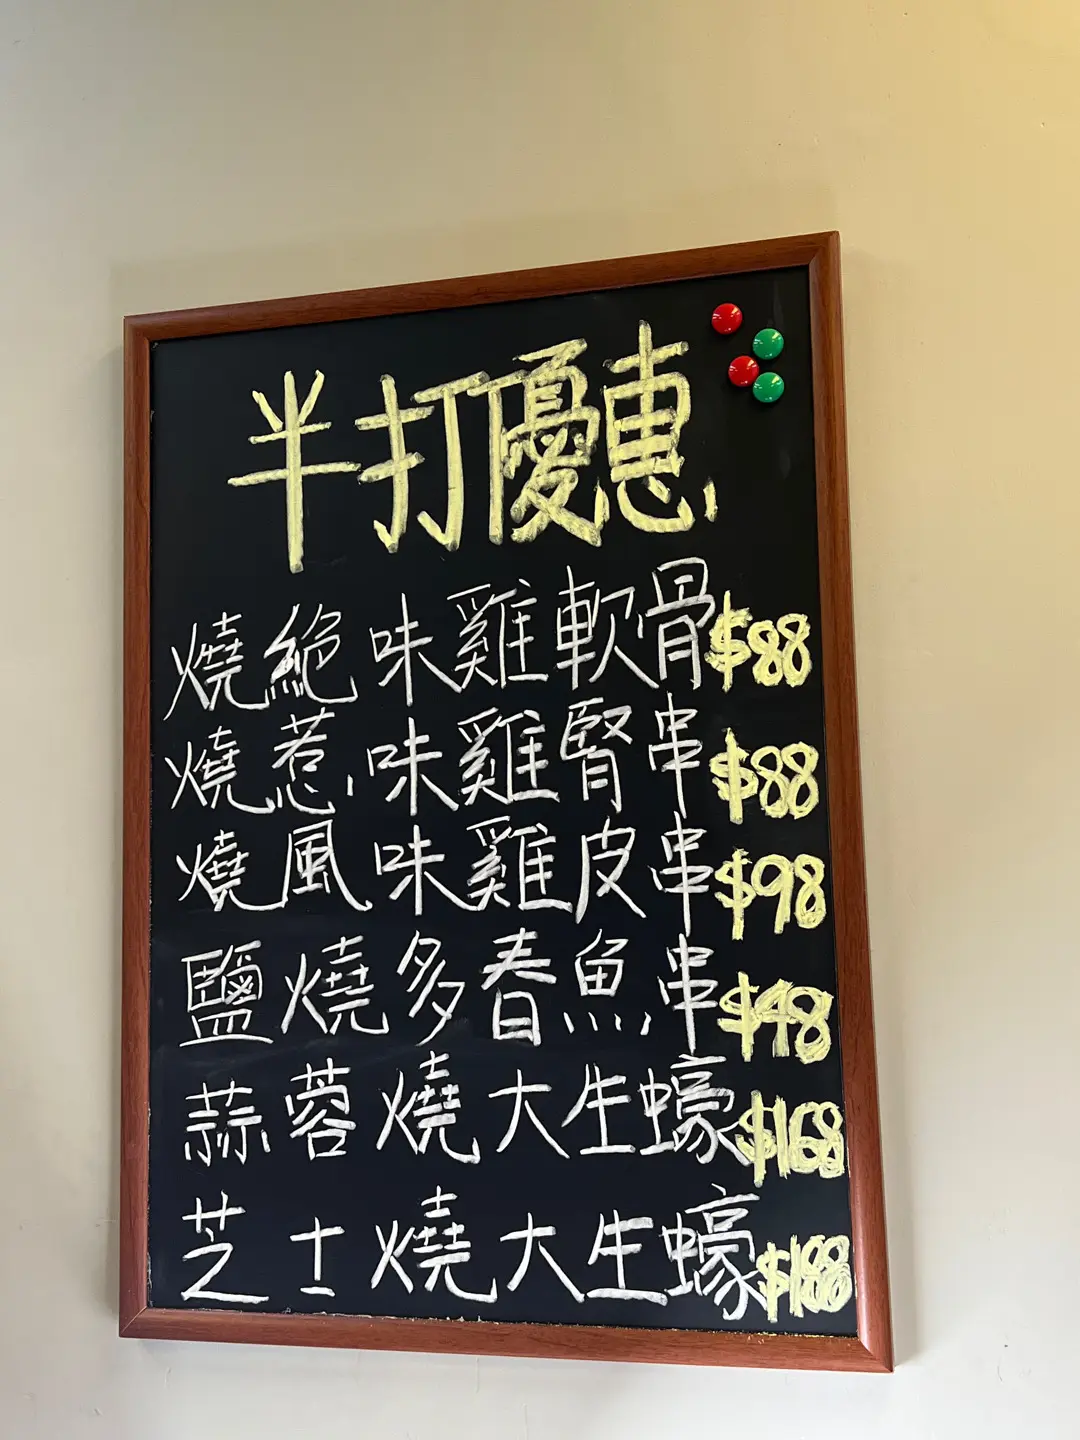 半打優惠
燒絕味雞軟骨$88
燒惹味雞腎串$88
燒風味雞皮串$98
鹽燒多春魚串$98
蒜蓉燒大生蠔$168
芝士燒大生蠔$188